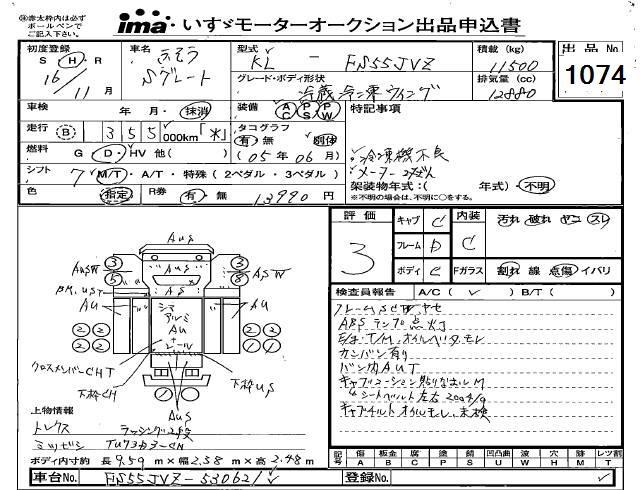 ㊟赤太枠内は必ず
ボールペンで
ご記入下さい。
ima・いすゞモーターオークション出品申込書
初度登録 S・H・R 16/11月
車名 ふそう Sグレート
型式 KL - FS55JVZ
グレード・ボディ形状 冷蔵冷凍ウィング
積載 (kg) 11500
排気量 (cc) 12880
出品 No. 1074
車検 年 月・抹消
装備 AC PS PW
特記事項
走行 B 355,000km「米」
タコグラフ 有・無 別体
燃料 G・D・HV 他( )
(05年06月)
冷凍機不良
メーター
シフト 7 M/T・A/T・特殊 (2ペダル・3ペダル)
架装物年式:( 年式)・不明
※不明の場合は、不明に○をする。
色 指定 R券 有・無 13990 円
評価 3
キャブ C 内装 C 汚れ 破れ ヤニ スレ
フレーム D
ボディ C Fガラス 割れ 線 点傷 イバリ
検査員報告 A/C( ✓ ) B/T( )
フレームSCW ヤセ
ABSランプ点灯
E/g.T/M.オイルベタモレ
カンバン有り
バン内AUT
キャブコーション貼りなおしM
シートベルト左右2004/9
キャブチルトオイルモレ.未検
AuS
AuSW 3 5
3 8 ASW
AuS
AS
BM.UST
AU
シマアルミ
AU
AU
2 2
2 2
2 2
1 1
クロスメンバーCHT
下枠CH
下枠US
AuS
上物情報
トレクス ラッシング2段
ミツビシ
ボディ内寸約 長9.59m×幅2.38m×高2.48m
記号 傷A 板金B 腐C 塗P 錆S 凹凸曲U 波W 穴H 跡M レツ割T
車台No. FS55JVZ-530621
登録No.